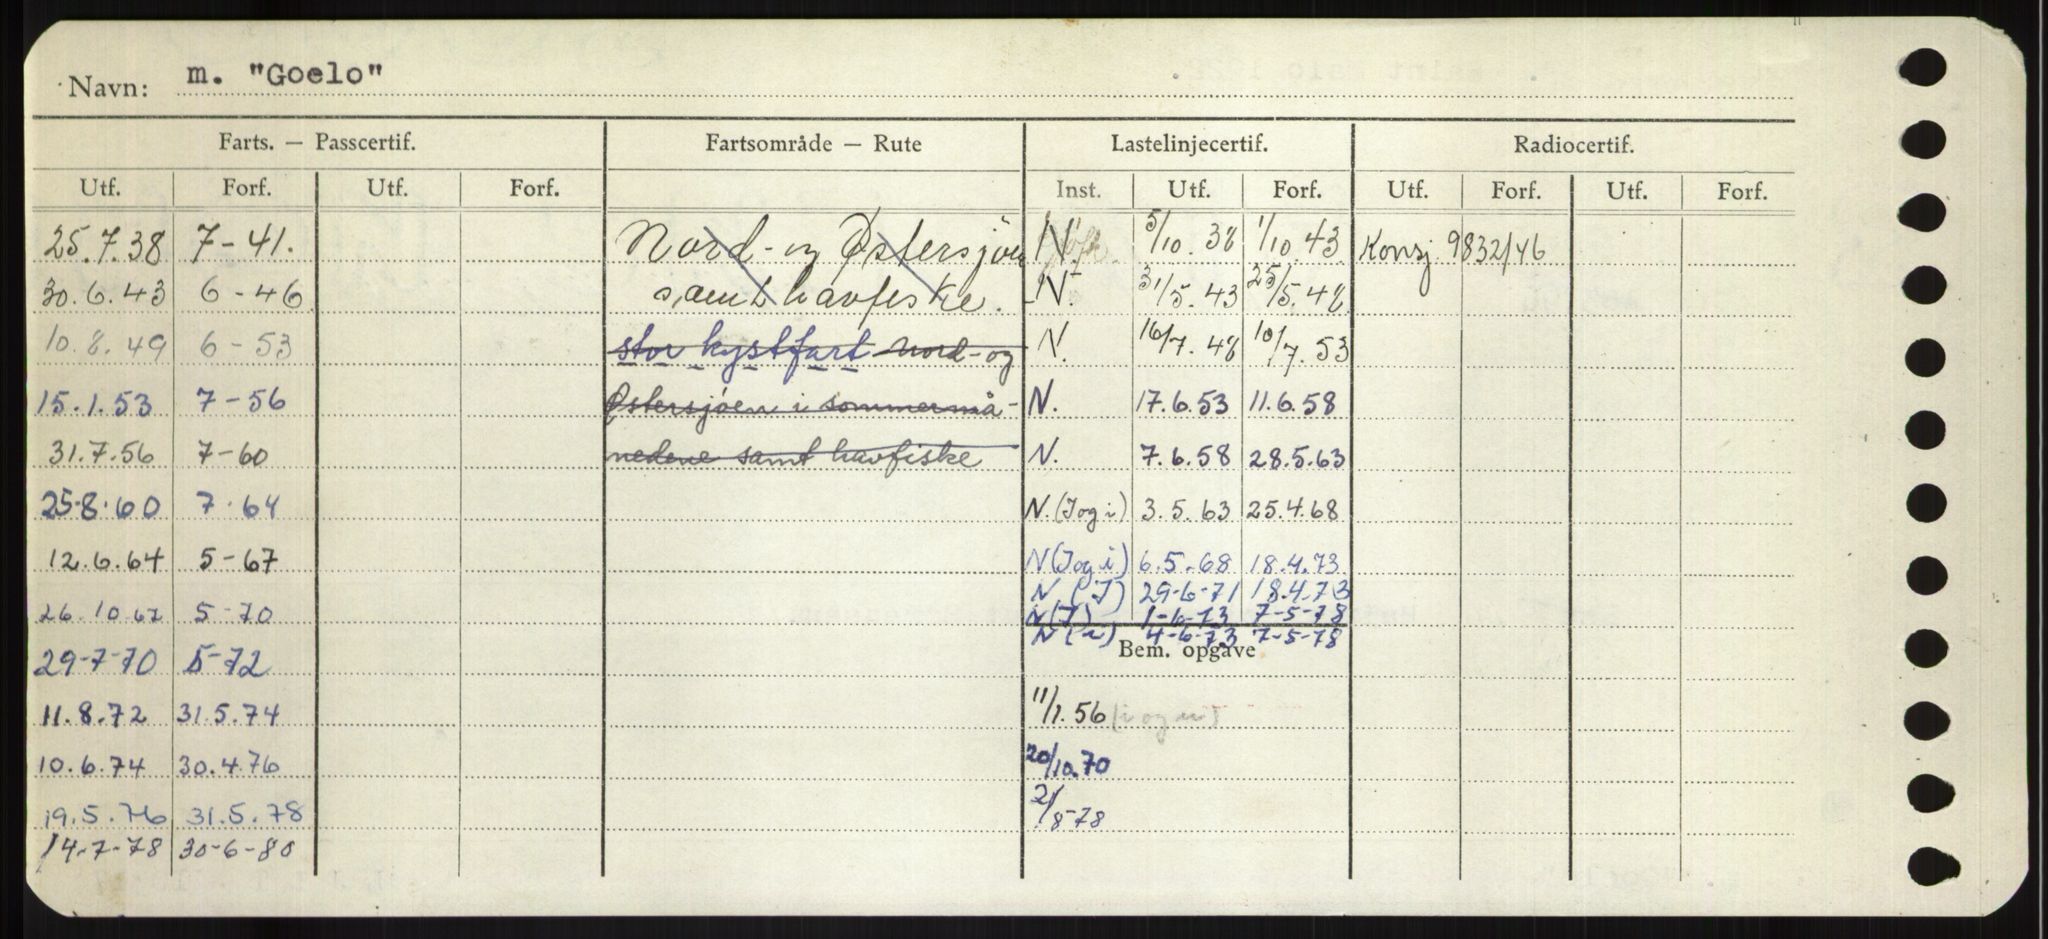 Navn: m. "Goelo"
Farts. — Passcertif. Fartsområde — Rute Lastelinjecertif. Radiocertif.
Utf. Forf. Utf. Forf. Inst. Utf. Forf. Utf. Forf. Utf. Forf.
25.7.38 7-41. Nord- og Østersjöen N. 5/10.38 1/10.43 Konsj 9832/46
30.6.43 6-46 samt havfiske. N. 31/5.43 25/5.48
10.8.49 6-53 stor kystfart nord- og N. 16/7.48 10/7.53
15.1.53 7-56 Østersjøen i sommermå- N. 17.6.53 11.6.58
31.7.56 7-60 nedene samt havfiske N. 7.6.58 28.5.63
25-8.60 7.64 N. (J og i) 3.5.63 25.4.68
12.6.64 5-67 N (J og i) 6.5.68 18.4.73
N (J) 29-6-71 18.4.73
26.10.67 5-70 N (J) 1-6-73 7-5-78
N (i) 4-6-73 7-5-78
29-7-70 5-72 Bem. opgave
11.8.72 31.5.74 11/1.56
10.6.74 30.4.76 20/10.70
19.5.76 31.5.78 21/8-78
14-7-78 30-6-80